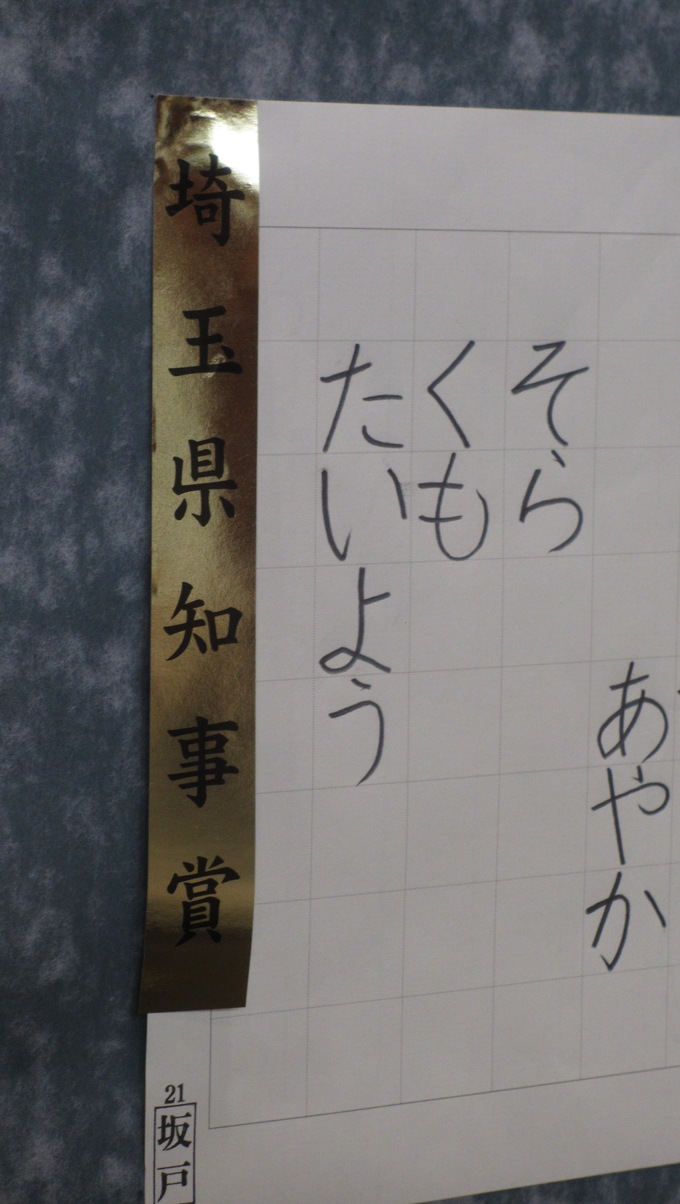 あやか
そら
くも
たいよう
埼玉県知事賞
21
坂戸